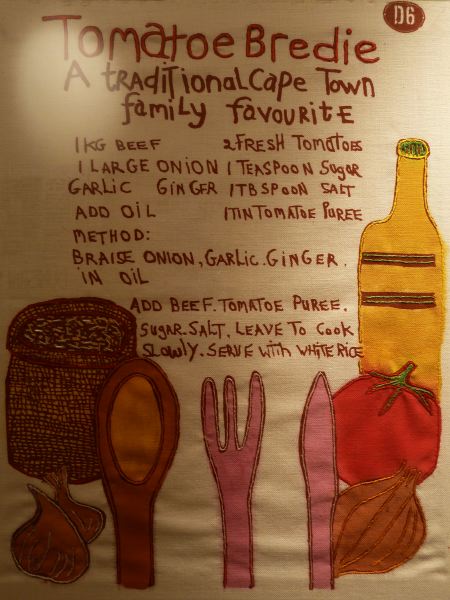 D6
Tomatoe Bredie
A traditional Cape Town
family favourite
1KG BEEF 2 FRESH TOMATOES
1 LARGE ONION 1 TEASPOON Sugar
GARLIC GINGER 1 TBSPOON SALT
ADD OIL 1 TIN TOMATOE PUREE
METHOD:
BRAISE ONION, GARLIC. GINGER.
IN OIL
ADD BEEF. TOMATOE PUREE.
SUGAR. SALT. LEAVE TO COOK
SLOWLY. SERVE WITH WHITE RICE